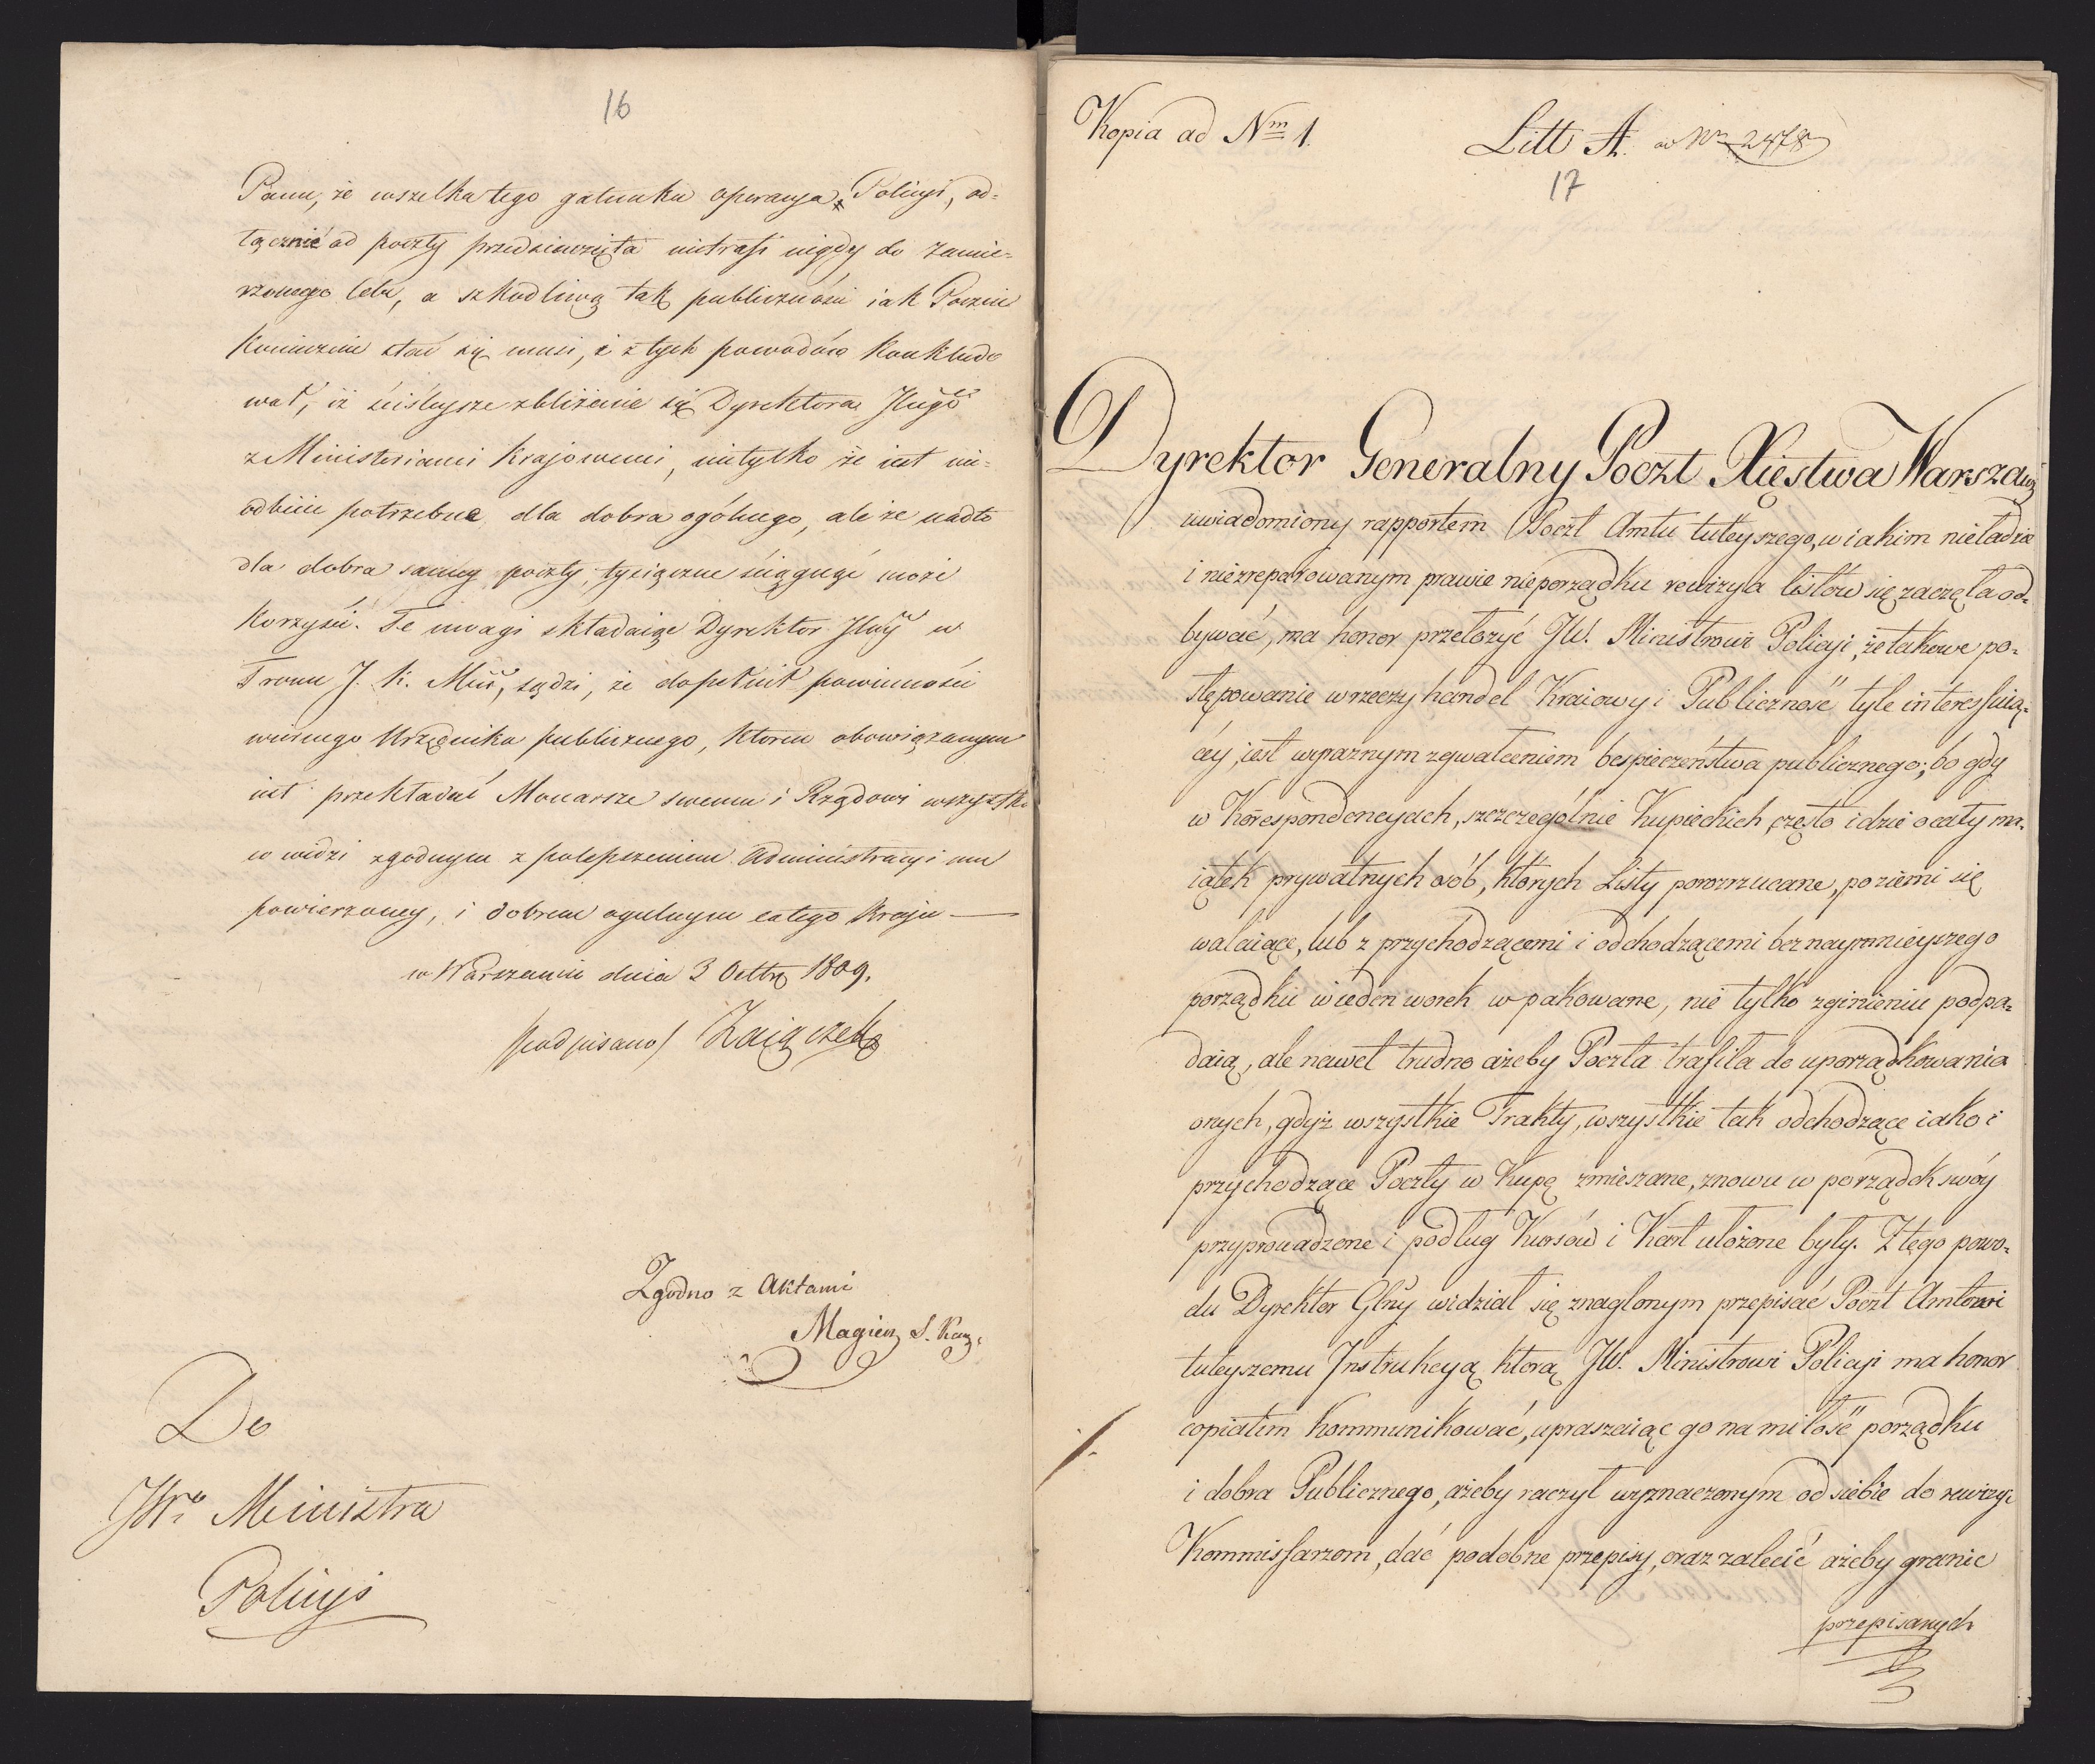 16
Panu, że wszelka tego gatunku operacya Policyi, od-
łącznie od poczty przedsiewzięta nietrafi nigdy do zamie-
rzonego celu, a szkodliwą tak publiczności iak Poczcie
koniecznie stać się musi, i z tych powodów konkludo
wał, iż ściśleysze zbliżenie się Dyrektora Jlngo
z Ministeriami krajowemi, nietylko że iest nie-
odbicie potrzebne dla dobra ogólnego, ale że nadto
dla dobra samey poczty, tysiączne ściągnąć może
korzyści. Te uwagi składaiąc Dyrektor Jlny u
Tronu J. K. Mci, sądzi, że dopełnił powinności
wiernego Urzędnika publicznego, który obowiązanym
iest przekładać Monarsze swemu i Rządowi wszystko
co widzi zgodnym z polepszeniem Administracyi mu
powierzoney, i dobrem ogulnym całego kraju —
w Warszawie dnia 3 Octbr 1809.
/podpisano/ Zaiączek
Zgodno z Aktami
Magier S. Kan.
Do
JWo Ministra
Policyi
Kopia ad Nm 1.
Litt A. ad Nm 2478
17
Dyrektor Generalny Poczt Xięstwa Warszaw
uwiadomiony rapportem Poczt Amtu tuteyszego, w iakim nieładzie
i niezreparowanym prawie nieporządku rewizya listów się zaczęła od-
bywać, ma honor przełożyć JW. Ministrowi Policyi, że takowe po-
stępowanie w rzeczy handel Kraiowy i Publiczność tyle interessuią-
céy, iest wyraznym zgwałceniem bespieczeństwa publicznego; bo gdy
w Korespondencyach, szczególnie Kupieckich często idzie o cały ma-
iątek prywatnych osób, których Listy porozrzucane, po ziemi się
walaiące, lub z przychodzącemi i odchodzącemi bez naymnieyszego
porządku w ieden worek wpakowane, nie tylko zginieniu podpa-
daią, ale nawet trudno ażeby Poczta trafiła do uporządkowania
onych, gdyż wszystkie Trakty, wszystkie tak odchodzące iako i
przychodzące Poczty w Kupę zmieszane, znowu w porządek swóy
przyprowadzone i podług Kursów i Kart ułożone były. Z tego powo-
du Dyrektor Glny widział się znaglonym przepisać Poczt Amtowi
tuteyszemu Instrukcyą którą JW. Ministrowi Policyi ma honor
copiatim Kommunikować, upraszaiąc go na miłość porządku
i dobra Publicznego, ażeby raczył wyznaczonym od siebie do rewizyi
Kommissarzom, dać podobne przepisy, oraz zalecić ażeby granic
przepisanych